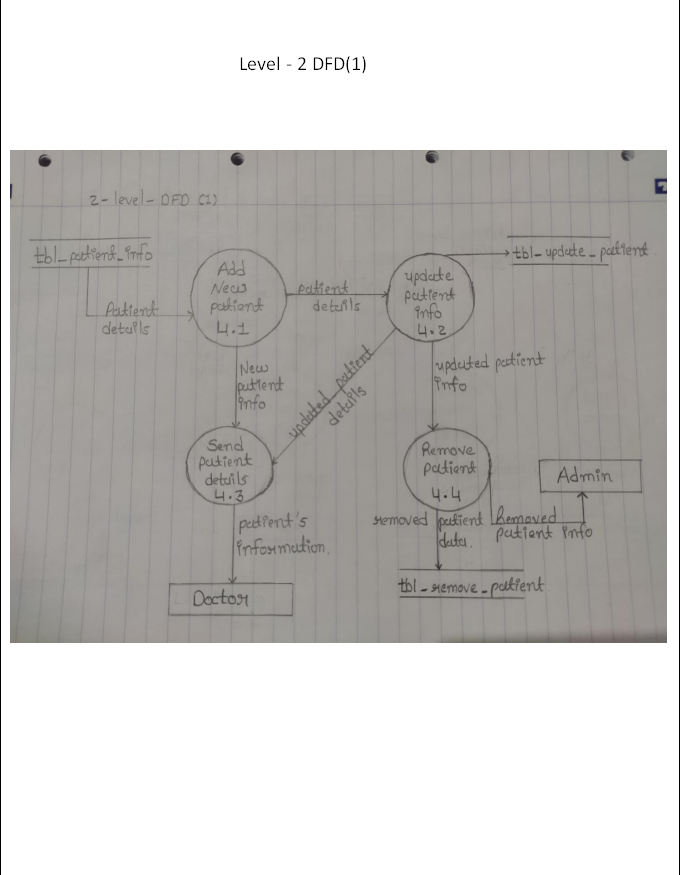 Level - 2 DFD(1)
2-level-DFD (1)
tbl_patient_info
Patient
details
Add
New
patient
4.1
patient
details
update
patient
info
4.2
tbl_update_patient
New
patient
info
updated patient
details
updated patient
info
Send
patient
details
4.3
Remove
patient
4.4
Admin
patient's
information.
removed patient
data.
Removed
patient info
Doctor
tbl_remove_patient